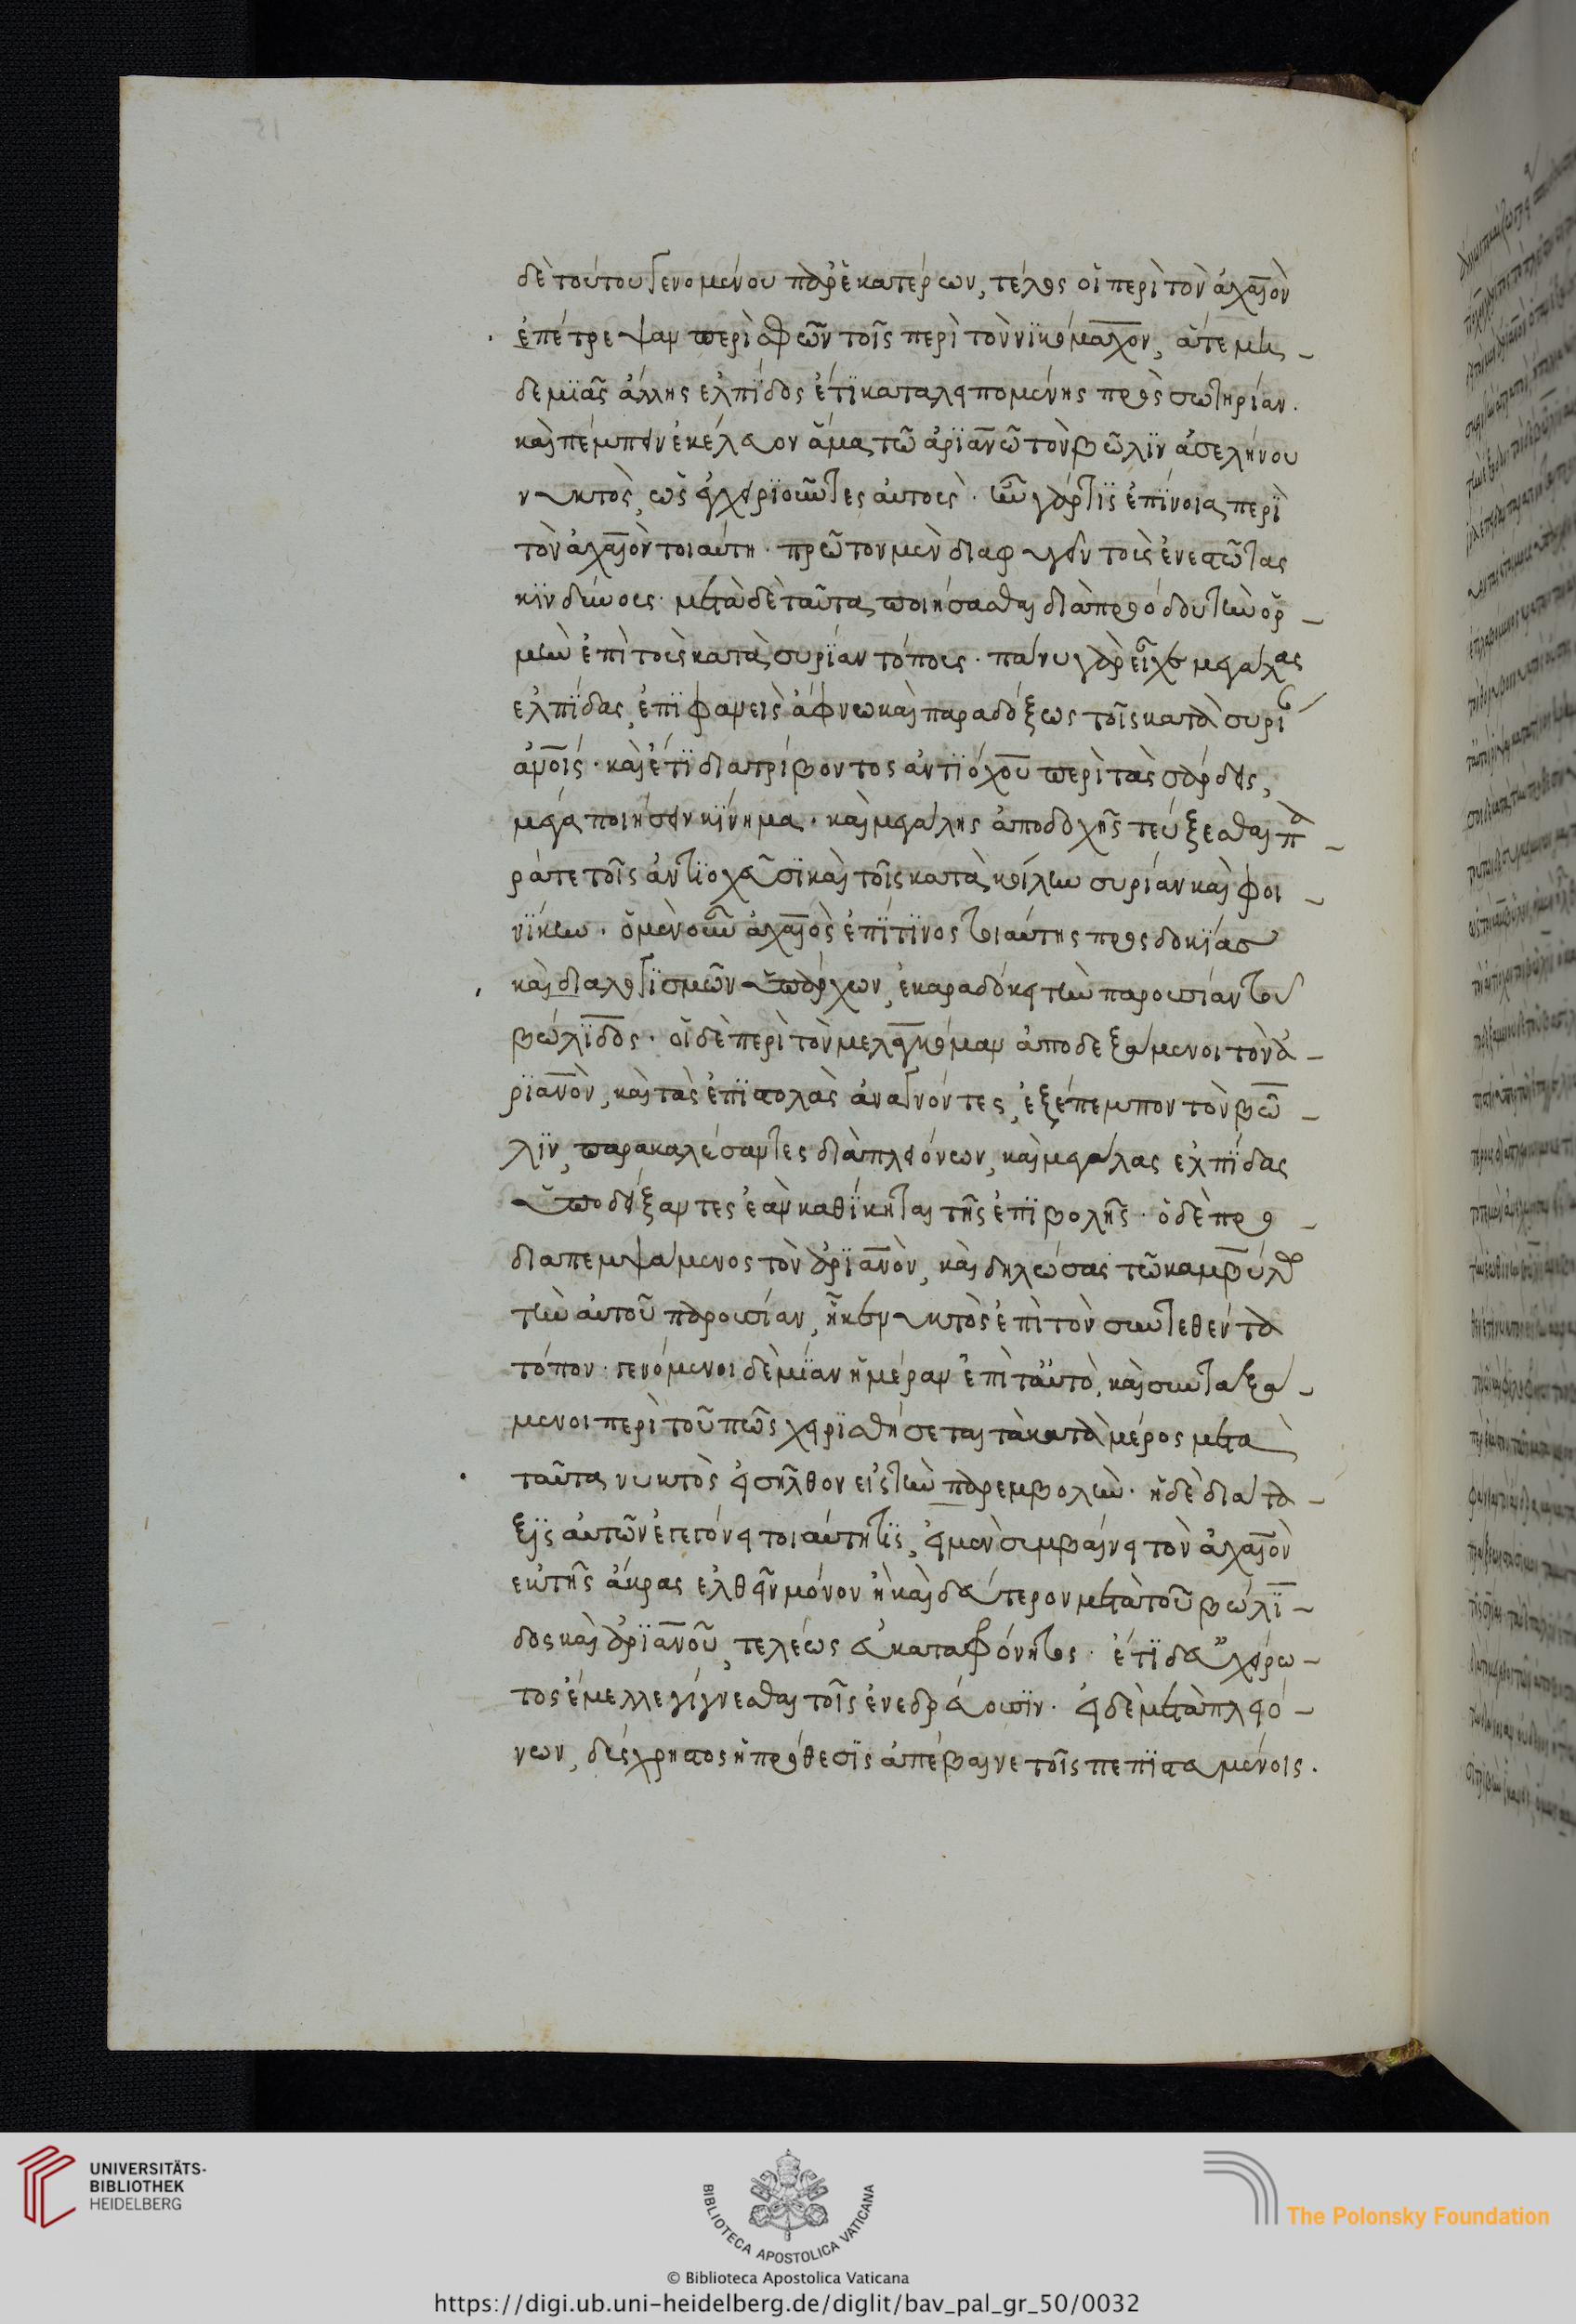 δὲ τούτου γενομένου παρ' ἑκατέρων, τέλος οἱ περὶ τὸν ἀχαιὸν
ἐπέτρεψαν περὶ σφῶν τοῖς περὶ τὸν νϊκόμαχον, ἅτε μη-
δεμϊᾶς ἄλλης ἐλπίδος ἔτϊ καταλειπομένης πρὸς σωτηρίαν.
καὶ πέμπειν ἐκέλευον ἅμα τῶ ἀρϊανῶ τὸν βῶλϊν ἀσελήνου
νυκτὸς, ὡς ἐγχειρϊοῦντες αὐτοὺς. ἦν γάρ τϊς ἐπίνοια περὶ
τὸν ἀχαιὸν τοιαύτη. πρῶτον μὲν διαφυγεῖν τοὺς ἐνεστῶτας
κϊνδύνους. μετὰ δὲ ταῦτα ποιήσασθαι διὰ προόδου τὴν ὁρ-
μὴν ἐπὶ τοὺς κατὰ συρϊαν τόπους. πάνυ γὰρ εἶχε μεγάλας
ἐλπίδας, ἐπϊφανεὶς ἄφνω καὶ παραδόξως τοῖς κατὰ συρί
ἀνοις. καὶ ἔτϊ διατρίβοντος ἀντϊόχου περὶ τὰς σάρδεις,
μέγα ποιήσειν κίνημα. καὶ μεγάλης ἀποδοχῆς τεύξεσθαι πα-
ρά τε τοῖς ἀντϊοχεῦσϊ καὶ τοῖς κατὰ κοίλην συρίαν καὶ φοι-
νίκην. ὁ μὲν οὖν ἀχαιὸς ἐπί τϊνος τοιαύτης προσδοκίας
καὶ διαλογϊσμῶν ὑπάρχων, ἐκαραδόκει τὴν παρουσίαν τοῦ
βώλϊδος. οἱ δὲ περὶ τὸν μελαγκόμαν ἀποδεξάμενοι τὸν ἀ-
ρϊανὸν, καὶ τὰς ἐπϊστολὰς ἀναγνόντες, ἐξέπεμπον τὸν βῶ-
λϊν, παρακαλέσαντες διὰ πλειόνων, καὶ μεγάλας ἐλπίδας
ὑποδείξαντες ἐὰν καθίκηται τῆς ἐπϊβολῆς. ὁ δὲ προ-
διαπεμψάμενος τὸν ἀρϊανὸν, καὶ δηλώσας τῶ καμβύλω
τὴν αὐτοῦ παρουσίαν, ἧκε νυκτὸς ἐπὶ τὸν συντεθέντα
τόπον. γενόμενοι δὲ μϊαν ἡμέραν ἐπὶ ταὐτὸ, καὶ συνταξά-
μενοι περὶ τοῦ πῶς χειρϊσθήσεται τὰ κατὰ μέρος μετὰ
ταῦτα νυκτὸς εἰσῆλθον εἰς τὴν παρεμβολὴν. ἡ δὲ διάτα-
ξϊς αὐτῶν ἐγεγόνει τοιαύτη τϊς, εἰ μὲν συμβαίνει τὸν ἀχαιὸν
ἐκ τῆς ἄκρας ἐλθεῖν μόνον ἢ καὶ δεύτερον μετὰ τοῦ βώλϊ-
δος καὶ ἀρϊανοῦ, τελέως εὐκαταφρόνητος. ἔτϊ δ' εὐχείρω-
τος ἔμελλε γίγνεσθαι τοῖς ἐνεδρεύουσϊν. εἰ δὲ μετὰ πλειό-
νων, δύσχρηστος ἡ πρόθεσϊς ἀπέβαινε τοῖς πεπϊστευμένοις.
UNIVERSITÄTS-
BIBLIOTHEK
HEIDELBERG
BIBLIOTECA APOSTOLICA VATICANA
The Polonsky Foundation
© Biblioteca Apostolica Vaticana
https://digi.ub.uni-heidelberg.de/diglit/bav_pal_gr_50/0032